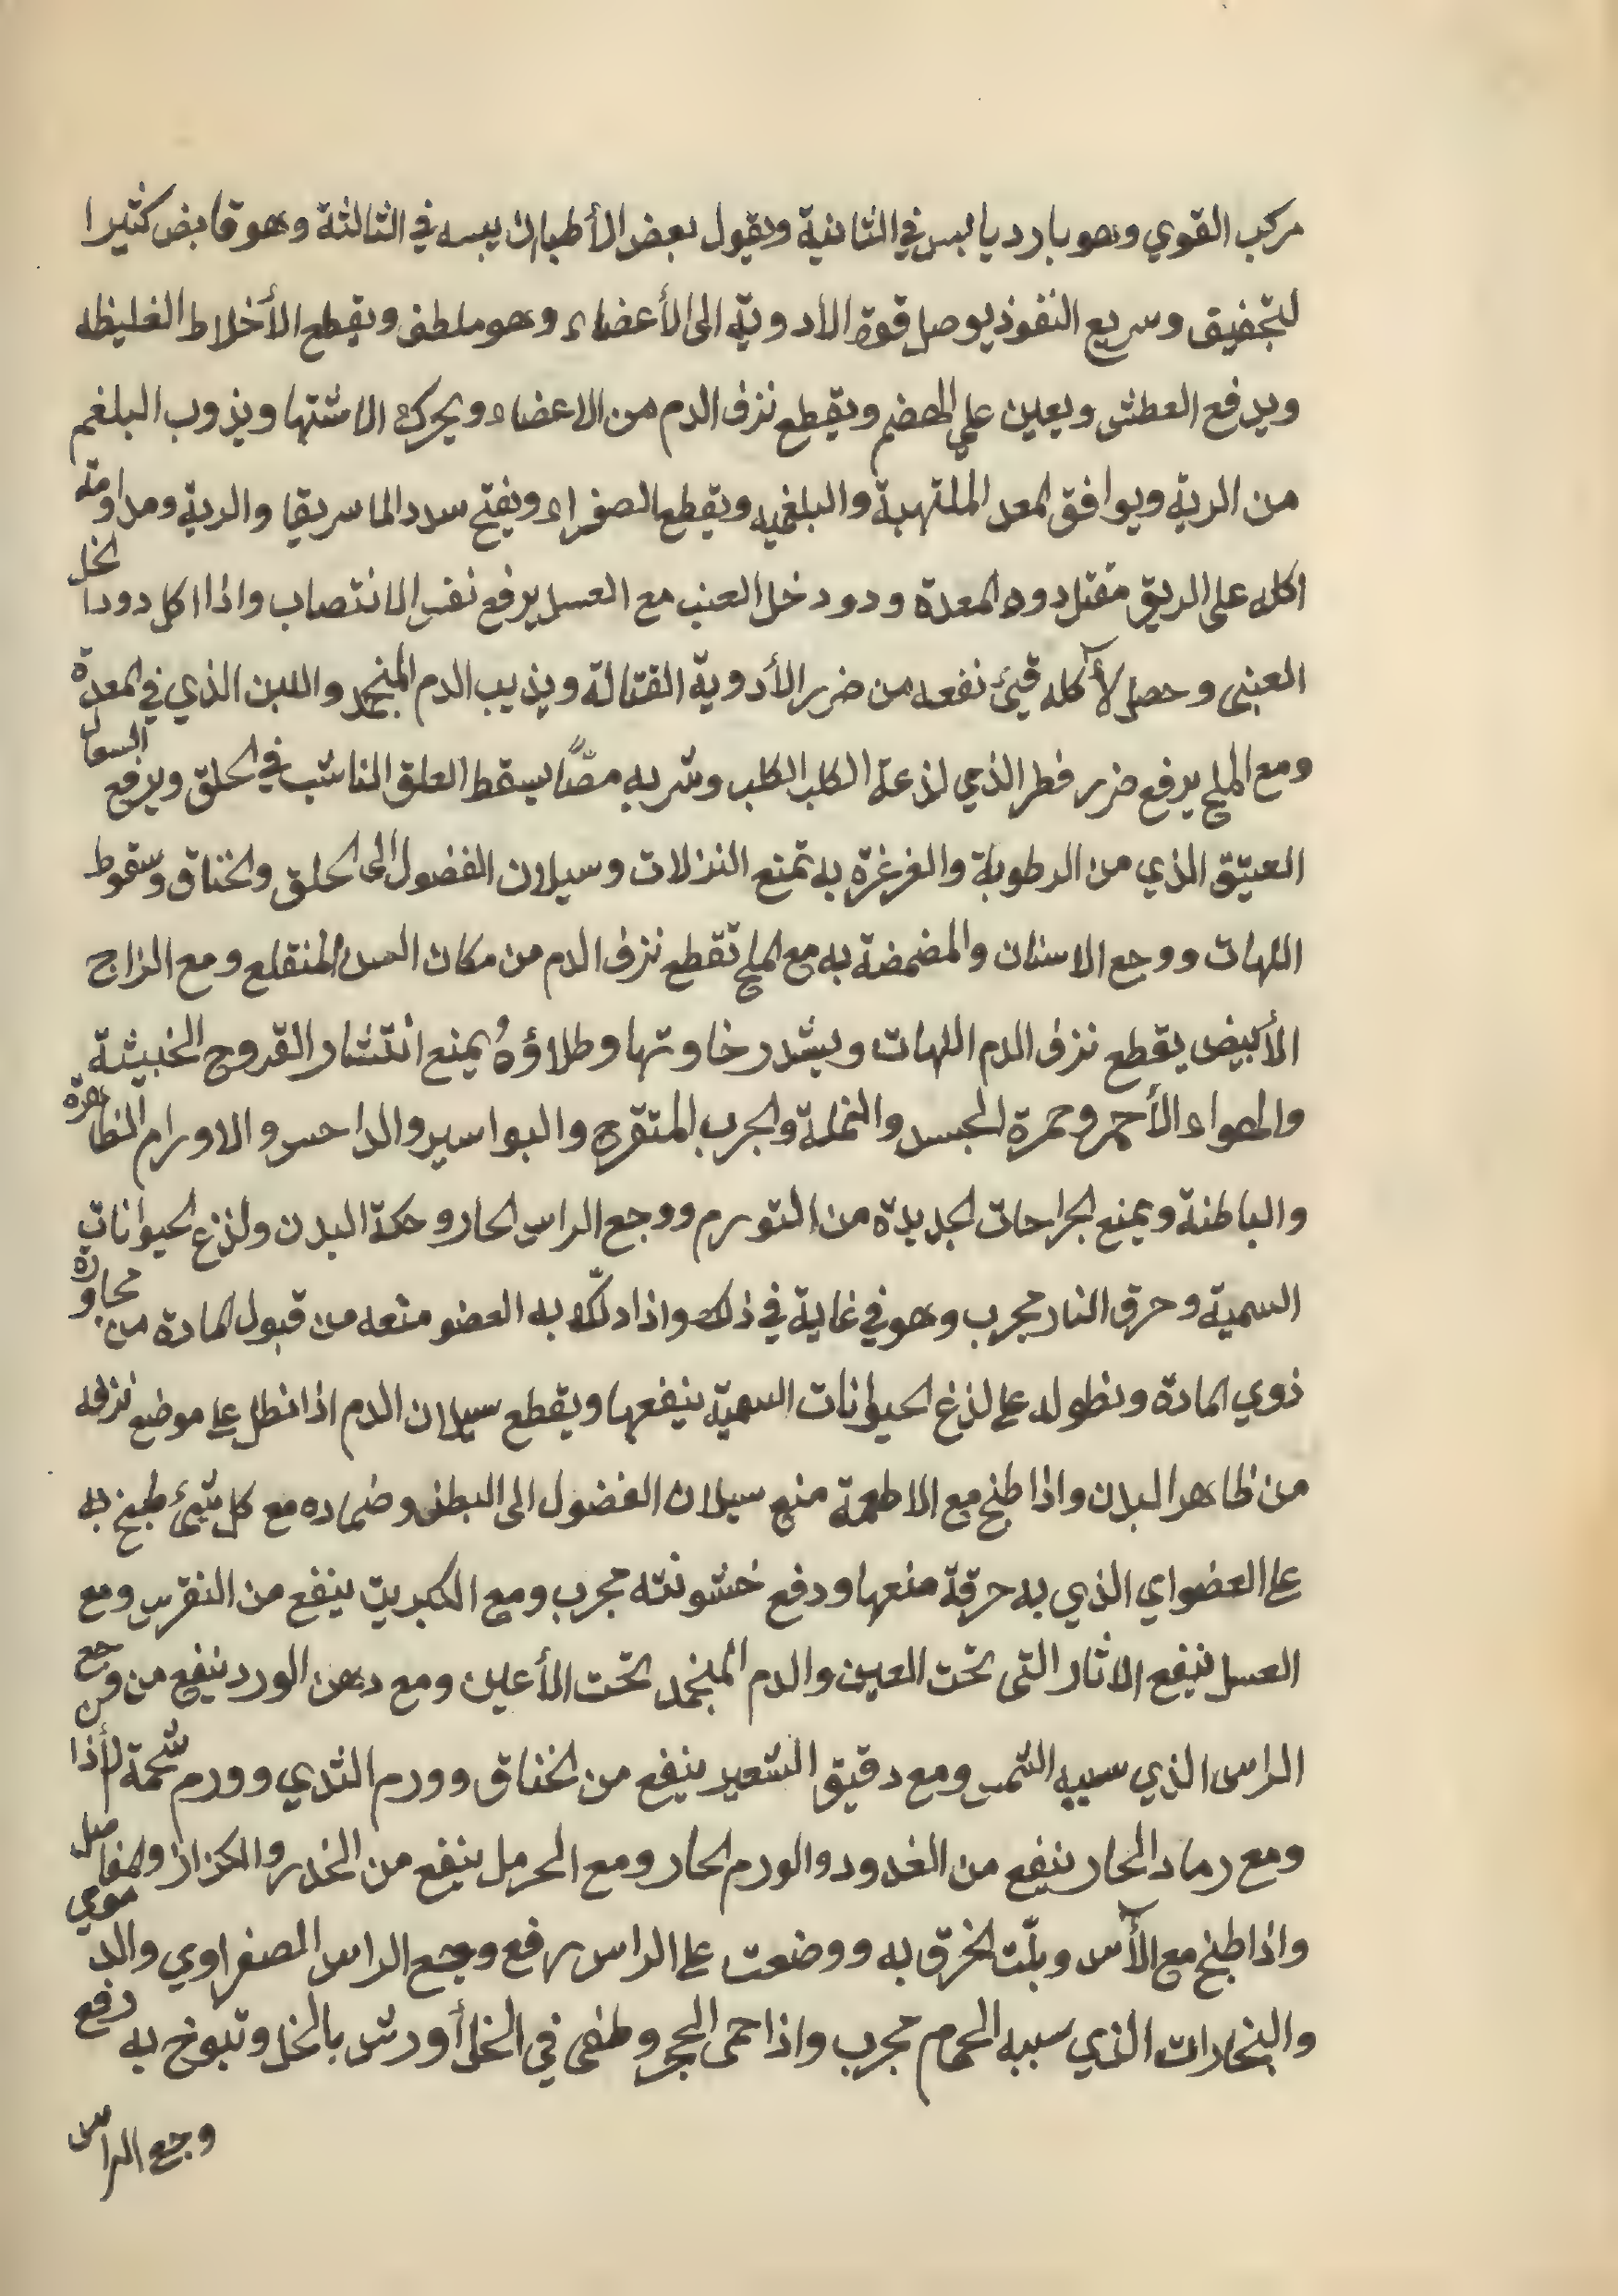 مركب القوي وهو بارد يابس في الثانية ويقول بعض الأطبا ان يبسه في الثالثة وهو قابض كثيرا
لتجفيق وسريع النفوذ يوصل قوة الادوية الى الأعضاء وهو ملطف ويقطع الأخلاط الغليظه
ويدفع العطش ويعين على الهضم ويقطع نزف الدم من الاعضاء ويحرك الاشتها ويذوب البلغم
من الرية ويوافق المعد الملتهبة والبلغميه ويقطع الصفراء ويفتح سدد الماسريقا والرية ومداومته
اكله على الريق مقتل دود المعدة ودود خل العنب مع العسل يرفع نفس الانتصاب واذا اكل دود الخل
العنبى وحصل لأكله قيئ نفعه من ضرر الأدوية القتالة ويذيب الدم المنجمد واللبن الذي في المعدة
ومع الملح يرفع ضرر فطر الذي لذعة الكلب الكلب وشربه مصًّا يسقط العلق الناشب في الحلق ويرفع السعال
العتيق الذي من الرطوبة والغرغرة به تمنع النزلات وسيلان الفضول الى الحلق والخناق وسقوط
اللهات ووجع الاسنان والمضمضة به مع الملح تقطع نزف الدم من مكان السن المنقلع ومع الزاج
الأبيض يقطع نزف الدم اللهات ويشد رخاوتها وطلاؤهُ يمنع انتشار القروح الخبيثة
والهواء الأحمر وحمرة الجسد والنملة والجرب المتقرح والبواسير والداحس والاورام الظاهرة
والباطنة ويمنع الجراحات الجديدة من التورم ووجع الراس الحار وحكة البدن ولذع الحيوانات
السمية وحرق النار مجرب وهو في غاية في ذلك واذا دلّك به العضو منعه من قبول المادة من مجاورة
ذوي المادة ونطوله على لذغ الحيوانات السمية ينفعها ويقطع سيلان الدم اذا نطل على موضع نزفه
من ظاهر البدن واذا طبخ مع الاطعمة منع سيلان الفضول الى البطن وضماده مع كل شيئ طبخ به
على العضو اي الذي به حرقة منعها ودفع خشونته مجرب ومع الكبريت ينفع من النقرس ومع
العسل ينفع الاثار التى تحت العين والدم المنجمد تحت الأعين ومع دهن الورد ينفع من وجع
الراس الذي سببه الشمس ومع دقيق الشعير ينفع من الخناق وورم الثدي وورم شحمة لأذان
ومع رماد المحار ينفع من الغدود والورم الحار ومع الحرمل ينفع من الخدر والكزاز والمفاصل
واذا طبخ مع الآس وبلّت الخرق به ووضعت على الراس رفع وجع الراس الصفراوي والدموي
والبخارات الذي سببه الحمام مجرب واذا حمى الحجر وطفى في الخل أو رش بالخل وتبوخ به دفع
وجع الراس